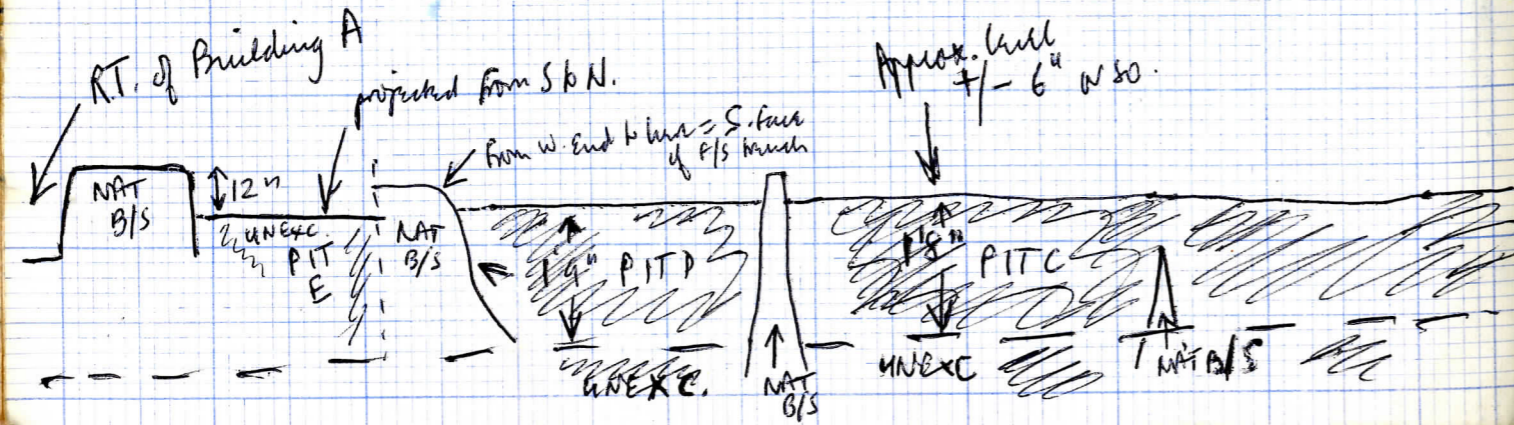 R.T. of Building A
projected from S to N.
Approx. level
+/- 6" or so.
from W. End to here = S. face
of F/S trench
NAT
B/S
12"
UNEXC.
PIT
E
NAT
B/S
1'9"
PIT D
UNEXC.
NAT
B/S
1'8"
PIT C
UNEXC
NAT B/S